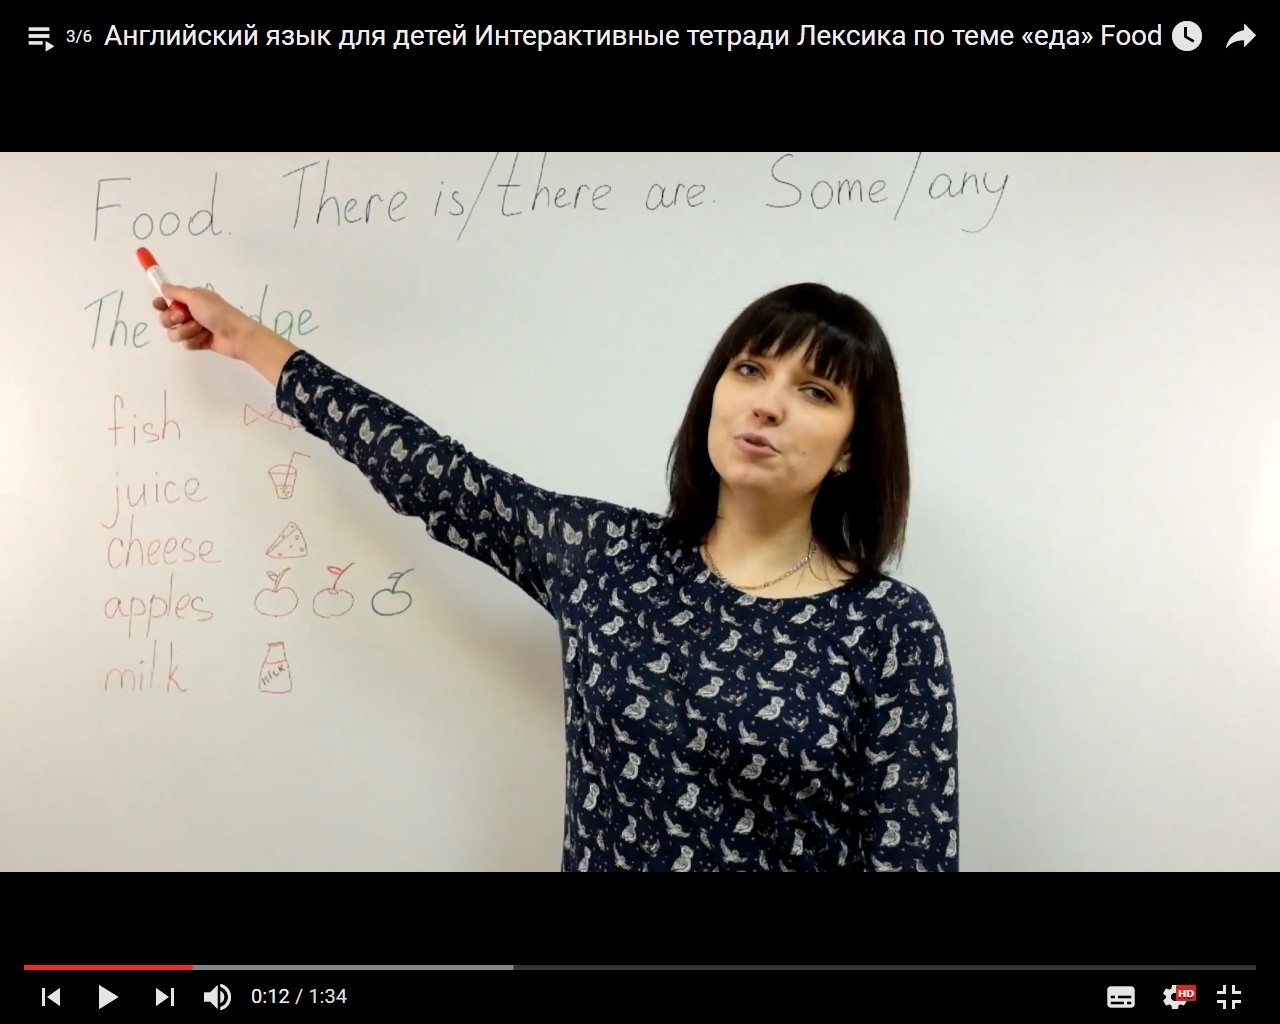 3/6 Английский язык для детей Интерактивные тетради Лексика по теме «еда» Food
Food. There is/there are. Some/any
The
fish
juice
cheese
apples
milk MILK
0:12 / 1:34
HD